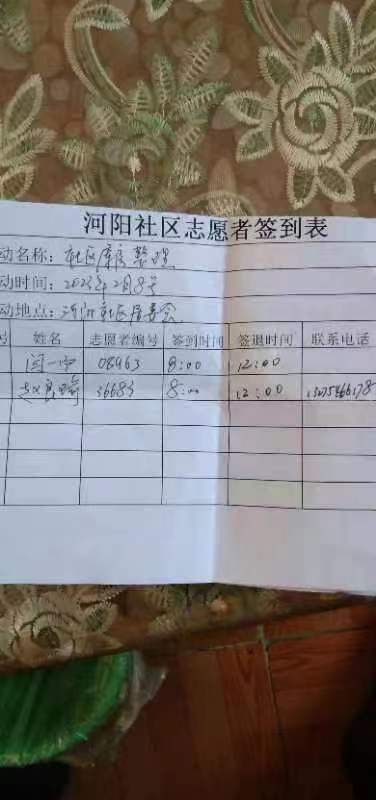 河阳社区志愿者签到表
动名称：社区库房整理
动时间：2023年2月8号
动地点：河阳社区居委会
号 姓名 志愿者编号 签到时间 签退时间 联系电话
闫一 08963 8:00 12:00
赵良 36683 8:00 12:00